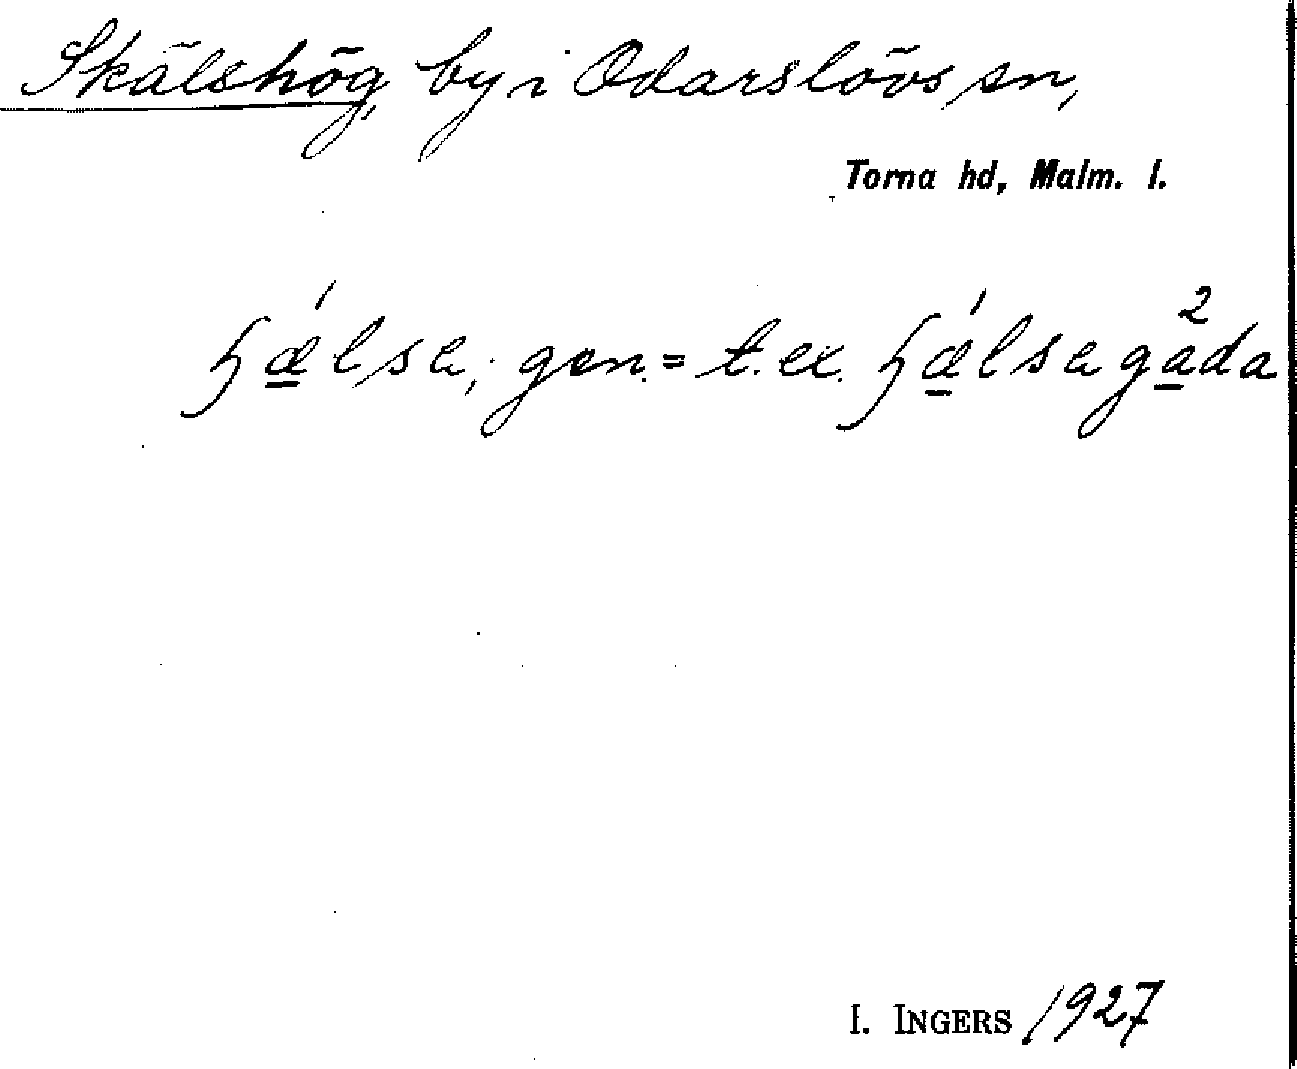 Skälshög, by i Odarslövs sn,
Torna hd, Malm. l.
ɧǽ̲lsa; gen. = t. ex. ɧǽ̲lsaga̲²da
I. INGERS 1927